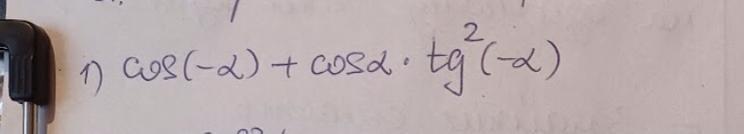 1) cos(-α) + cosα · tg²(-α)